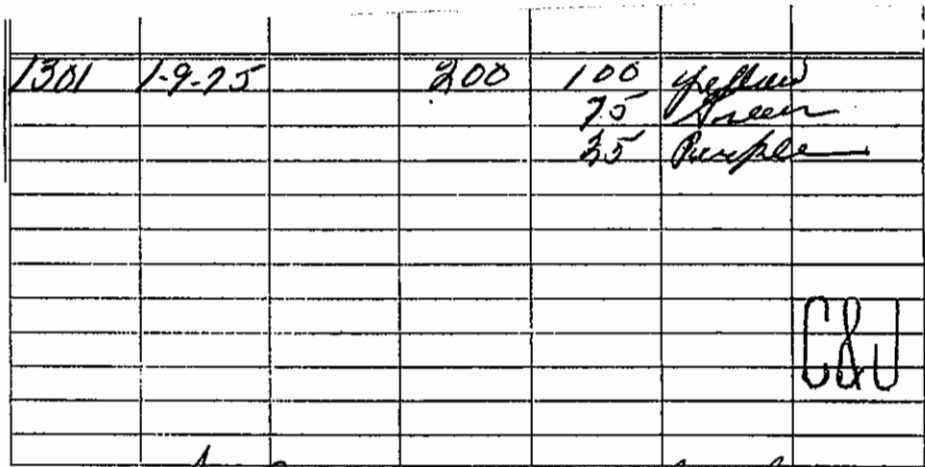 1301 1-9-75 200 100 yellow
75 Green
25 Purple
C&J